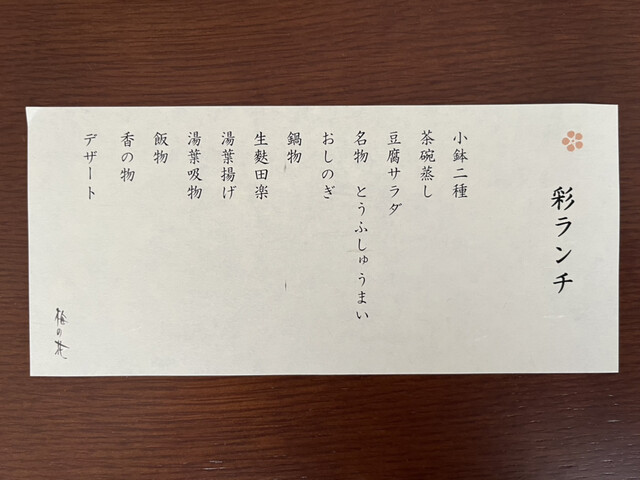 彩ランチ
小鉢二種
茶碗蒸し
豆腐サラダ
名物 とうふしゅうまい
おしのぎ
鍋物
生麩田楽
湯葉揚げ
湯葉吸物
飯物
香の物
デザート
梅の花